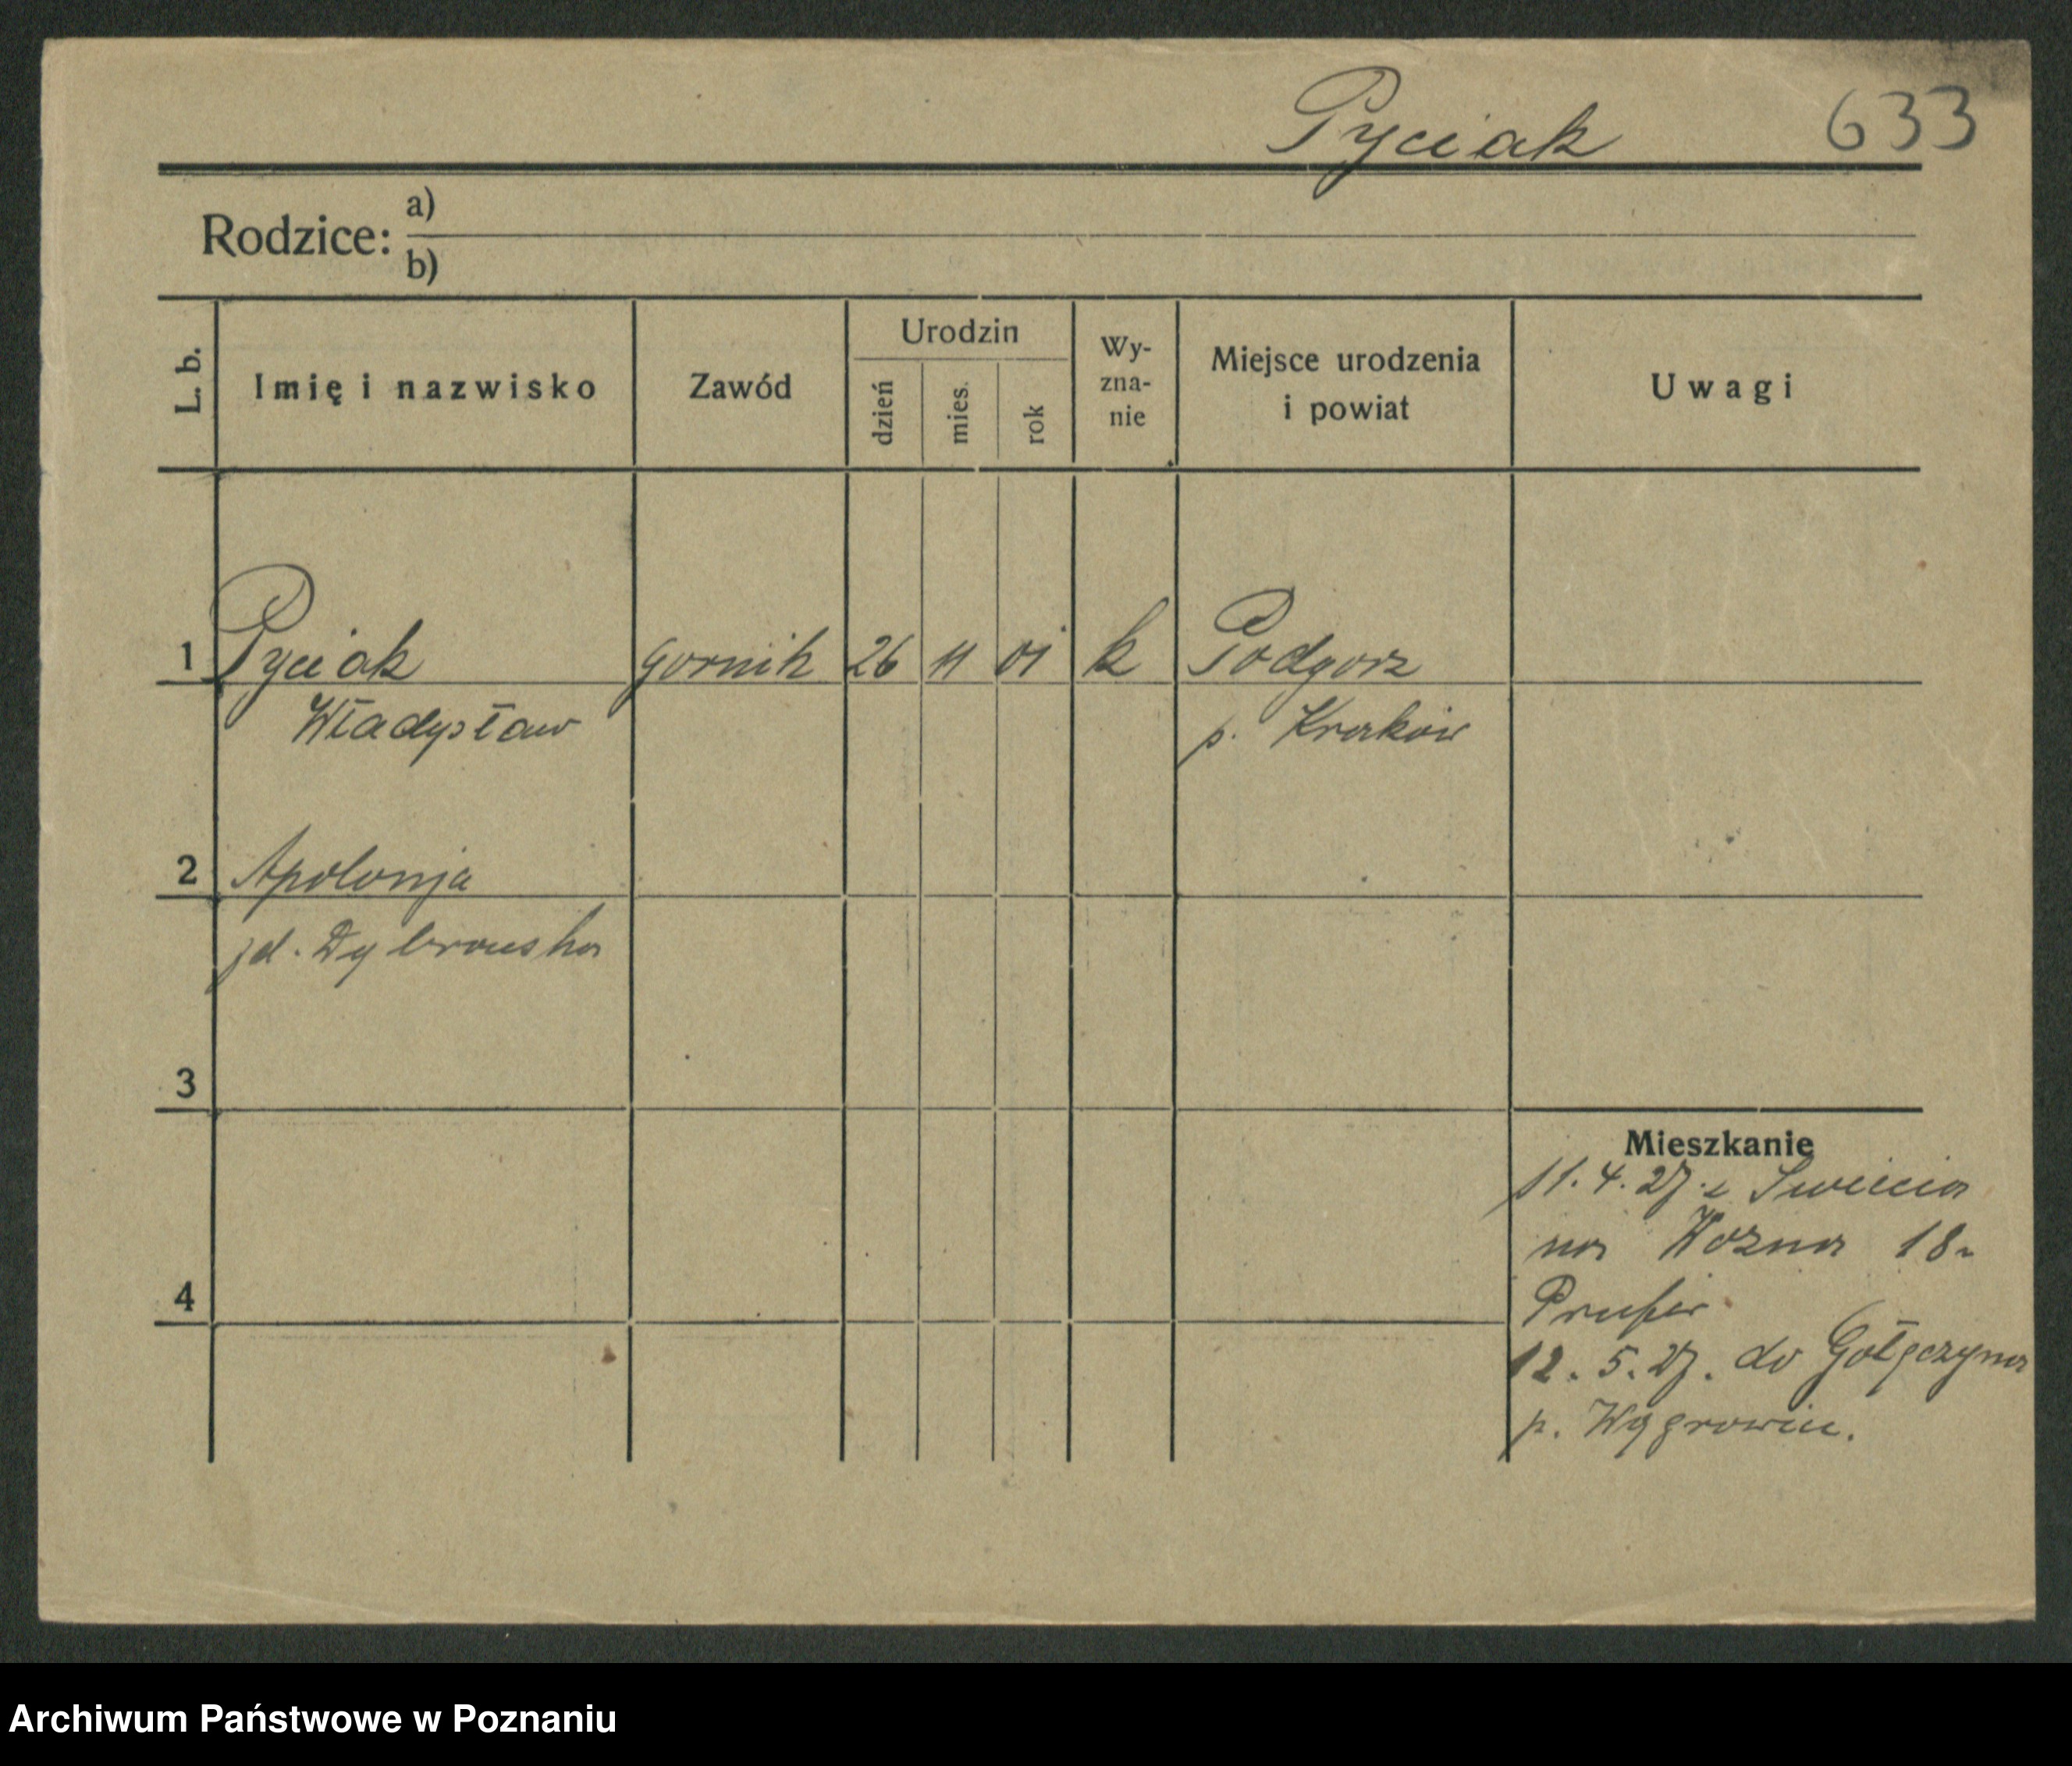 Pyciak 633
Rodzice: a)
b)
L. b. Imię i nazwisko Zawód Urodzin dzień mies. rok Wy-zna-nie Miejsce urodzenia i powiat Uwagi
1 Pyciak gornik 26 11 01 k Podgorz
Władysław p. Kraków
2 Apolonja
zd. Dybrowska
3
Mieszkanie
11.4.27. z Swiecia
na Wozna 18
4
12.5.27. do Gołęczyna
p. Wągrowiec.
Archiwum Państwowe w Poznaniu